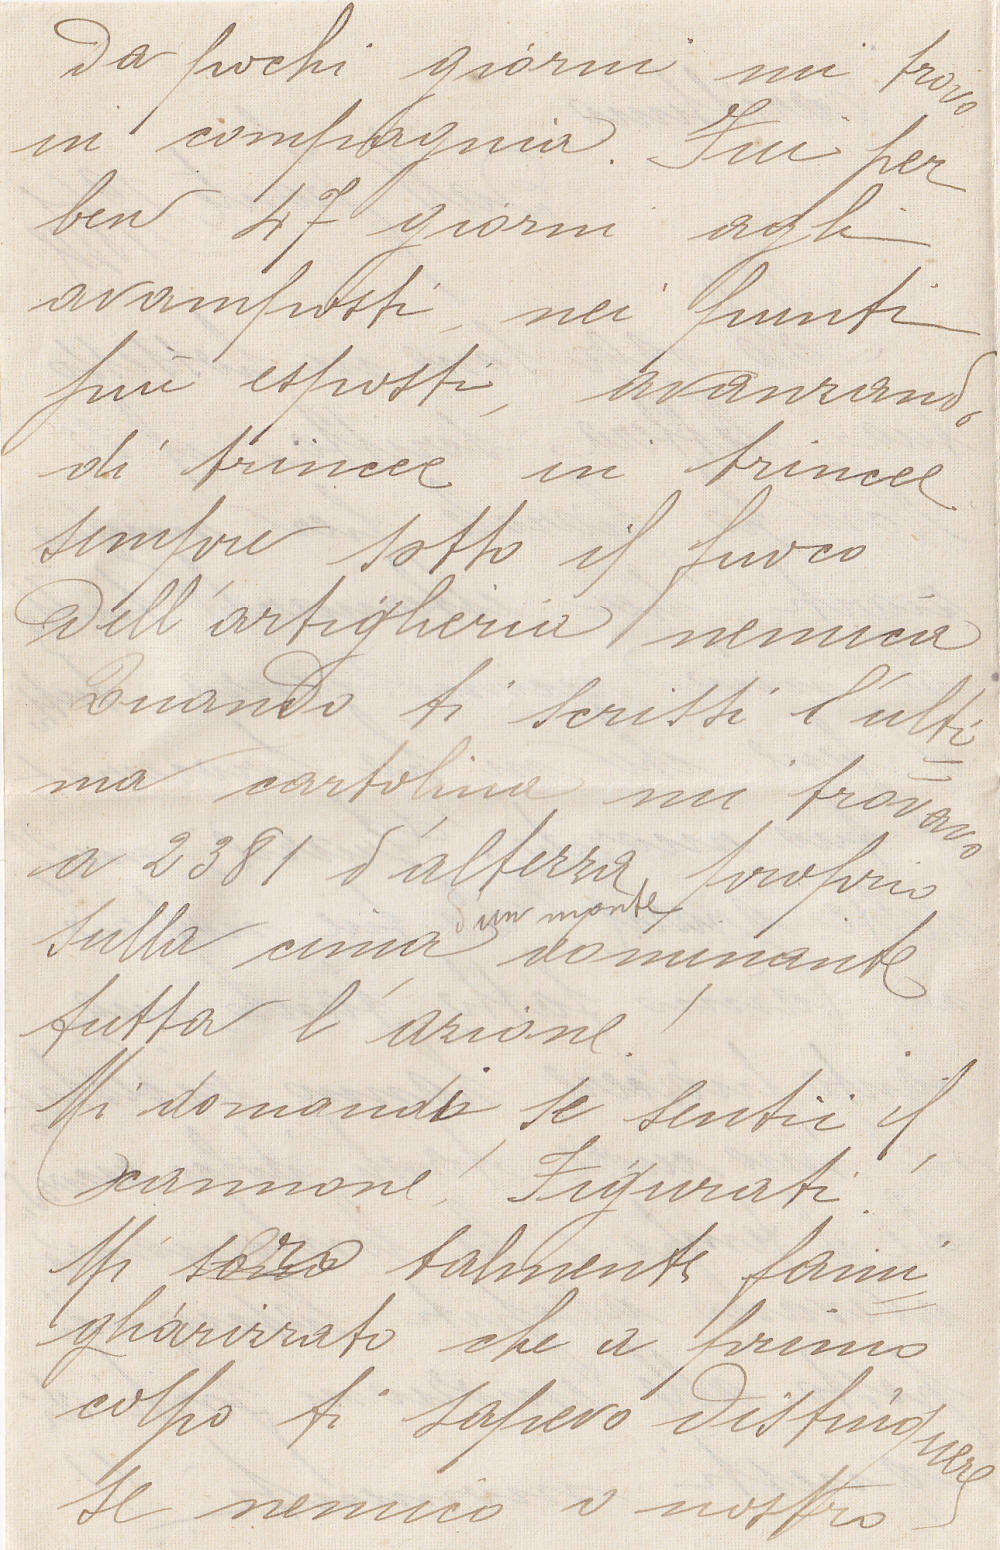 Da pochi giorni mi trovo
in compagnia. Fui per
ben 47 giorni agli
avamposti, nei punti
più esposti, avanzando
di trincee in trincee
sempre sotto il fuoco
dell'artiglieria nemica
Quando ti scrissi l'ulti=
ma cartolina mi trovavo
a 2381 d'altezza, proprio
sulla cima d'un monte dominante
tutta l'azione!
Mi domandi se sentii il
cannone! Figurati!
Mi sono talmente fami=
gliarizzato che a primo
colpo ti sapevo distinguere
se nemico o nostro